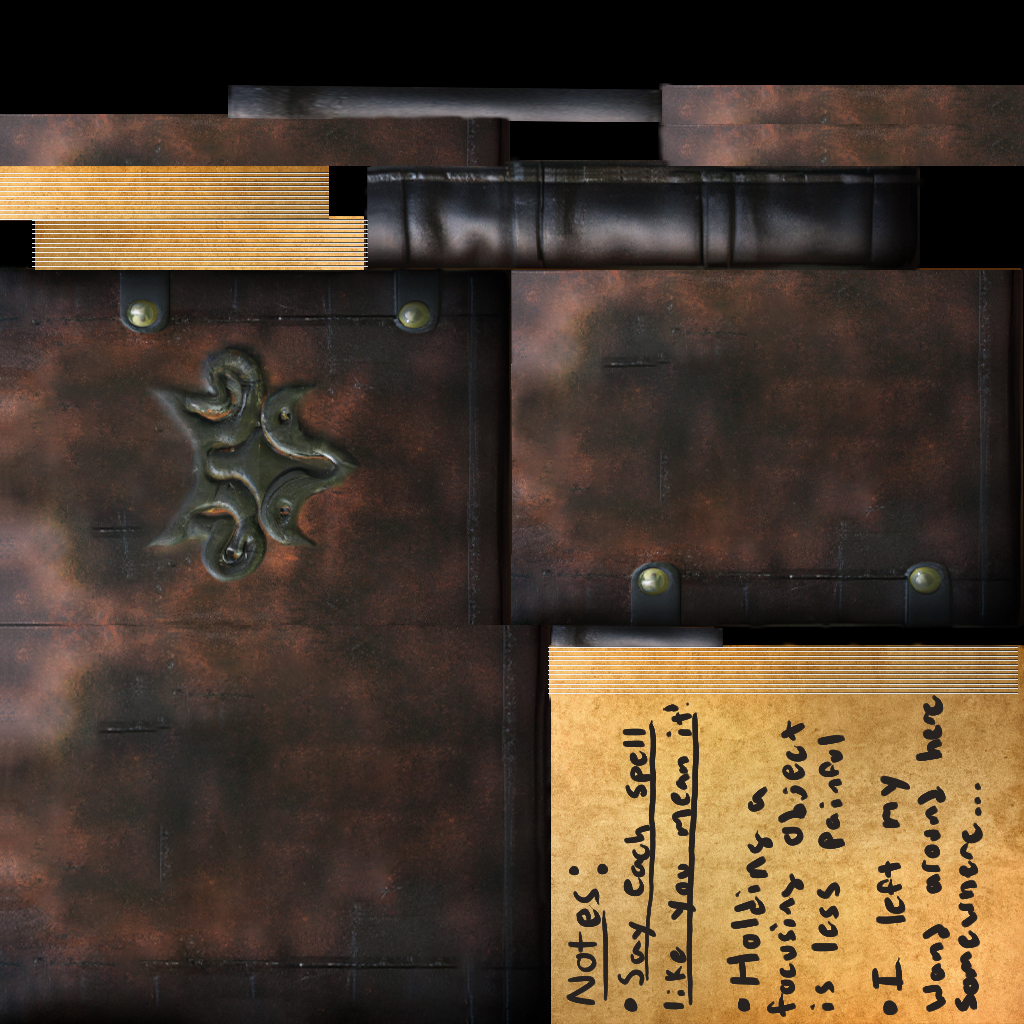 Notes:
• Say each spell
like you mean it!
• Holding a
focusing object
is less painful
• I left my
wand around here
somewhere...